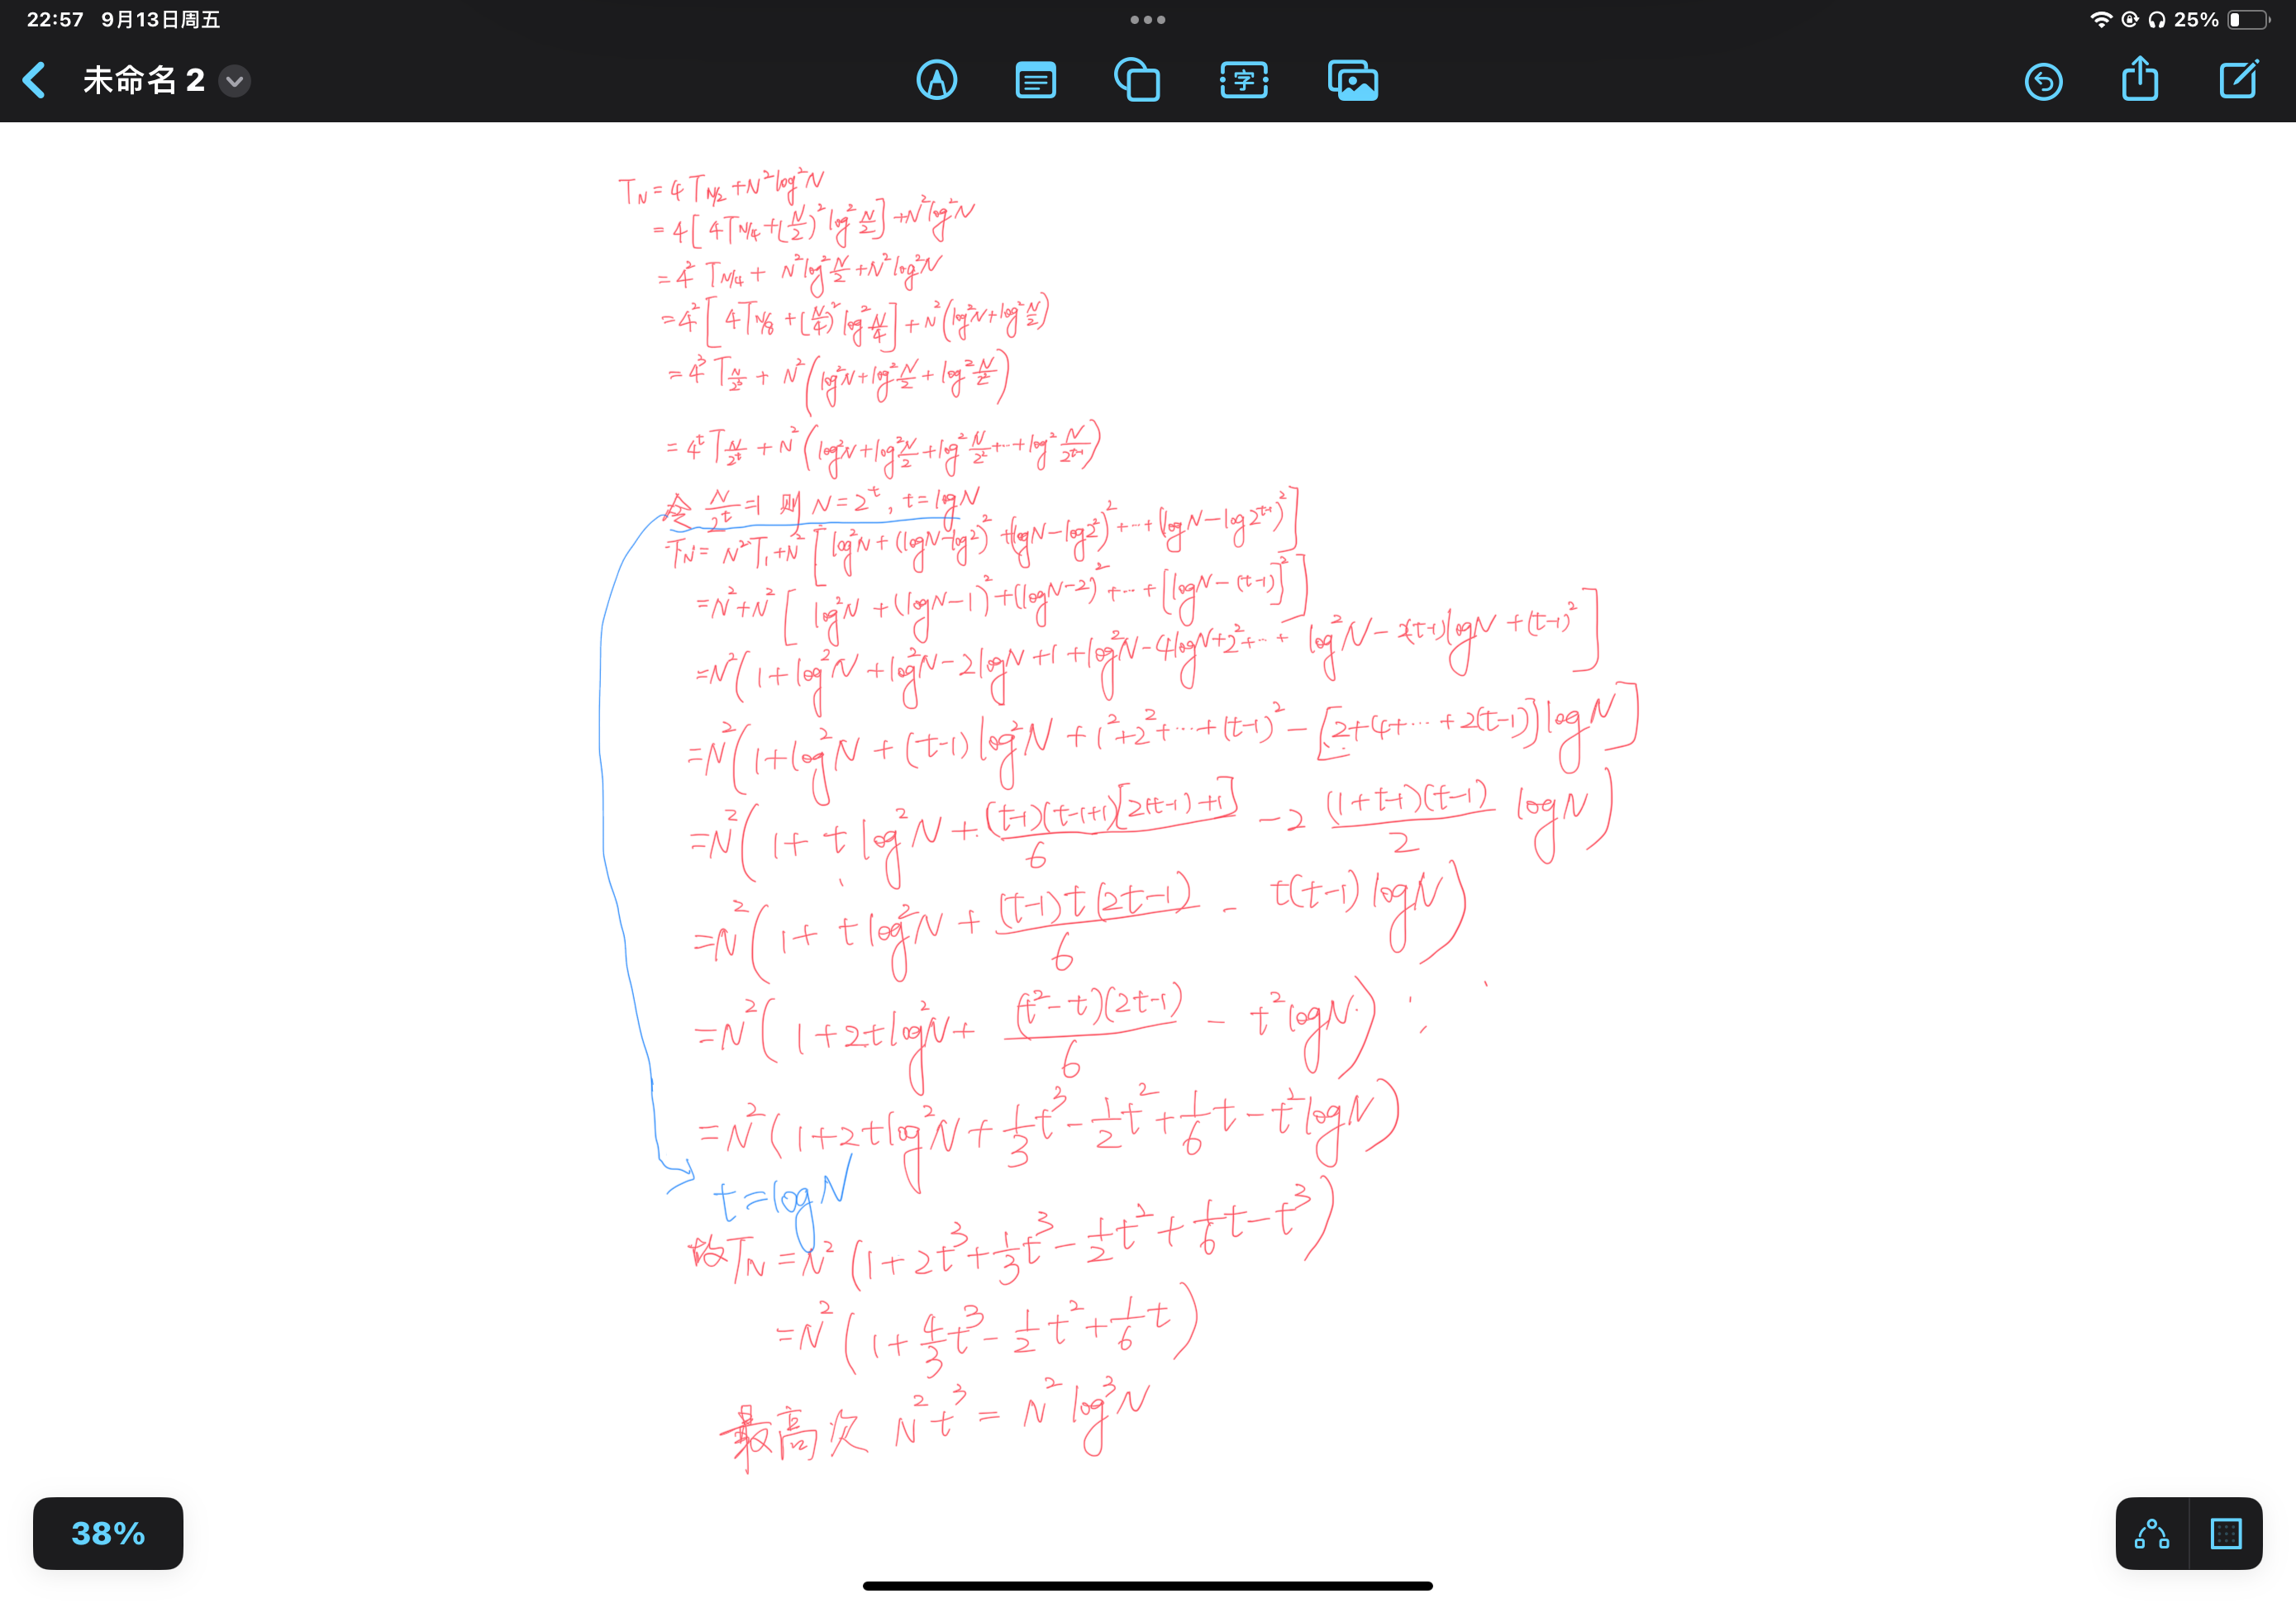 22:57 9月13日周五
25%
未命名 2
字
T_N = 4T_{N/2} + N²log²N
= 4[4T_{N/4} + (N/2)²log²N/2] + N²log²N
= 4²T_{N/4} + N²log²N/2 + N²log²N
= 4²[4T_{N/8} + (N/4)²log²N/4] + N²(log²N + log²N/2)
= 4³T_{N/2³} + N²(log²N + log²N/2 + log²N/2²)
= 4^t T_{N/2^t} + N²(log²N + log²N/2 + log²N/2² + ··· + log²N/2^{t-1})
令 N/2^t = 1 则 N = 2^t, t = logN
T_N = N²·T₁ + N²[log²N + (logN - log2)² + (logN - log2²)² + ··· + (logN - log2^{t-1})²]
= N² + N²[log²N + (logN - 1)² + (logN - 2)² + ··· + [logN - (t-1)]²]
= N²(1 + log²N + log²N - 2logN + 1 + log²N - 4logN + 2² + ··· + log²N - 2(t-1)logN + (t-1)²]
= N²(1 + log²N + (t-1)log²N + 1² + 2² + ··· + (t-1)² - [2 + 4 + ··· + 2(t-1)]logN]
= N²(1 + t log²N + (t-1)(t-1+1)[2(t-1)+1]/6 - 2 (1+t-1)(t-1)/2 logN)
= N²(1 + t log²N + (t-1)t(2t-1)/6 - t(t-1)logN)
= N²(1 + 2t log²N + (t²-t)(2t-1)/6 - t²logN)
= N²(1 + 2t log²N + 1/3t³ - 1/2t² + 1/6t - t²logN)
t = logN
故T_N = N²(1 + 2t³ + 1/3t³ - 1/2t² + 1/6t - t³)
= N²(1 + 4/3t³ - 1/2t² + 1/6t)
最高次 N²t³ = N²log³N
38%